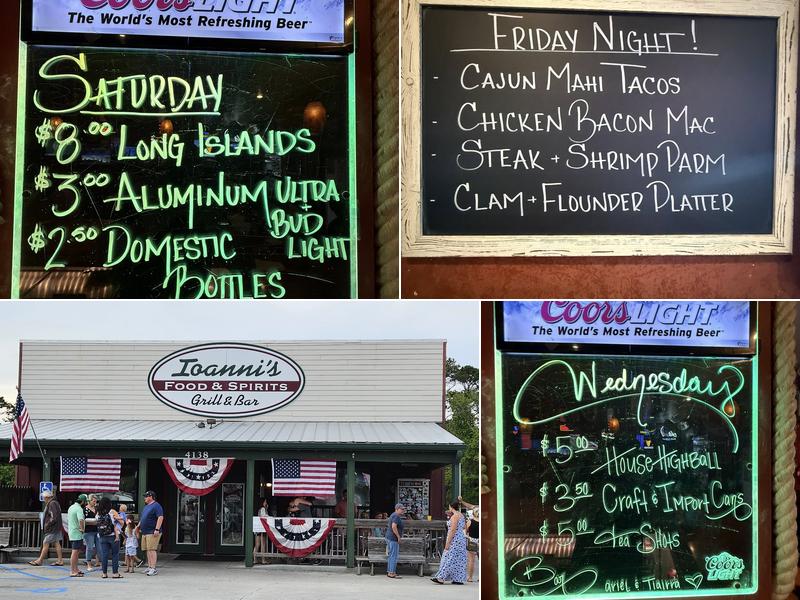 Coors LIGHT
The World's Most Refreshing Beer
SATURDAY
$8.00 LONG ISLANDS
$3.00 ALUMINUM ULTRA
+ BUD
LIGHT
$2.50 DOMESTIC
BOTTLES
FRIDAY NIGHT!
- CAJUN MAHI TACOS
- CHICKEN BACON MAC
- STEAK + SHRIMP PARM
- CLAM + FLOUNDER PLATTER
Ioanni's
FOOD & SPIRITS
Grill & Bar
4138
Coors LIGHT
The World's Most Refreshing Beer
Wednesday
$5.00 House Highball
$3.50 Craft & Import Cans
$5.00 Tea Shots
Coors
LIGHT
Bar Ariel & Tiairra